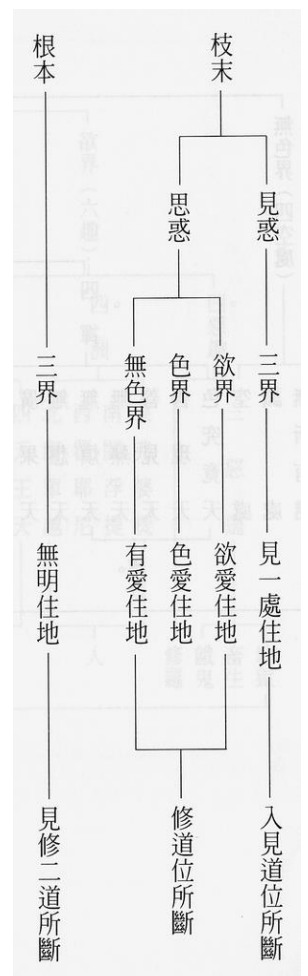 枝末
見惑
三界
見一處住地
入見道位所斷
思惑
欲界
欲愛住地
色界
色愛住地
無色界
有愛住地
修道位所斷
根本
三界
無明住地
見修二道所斷